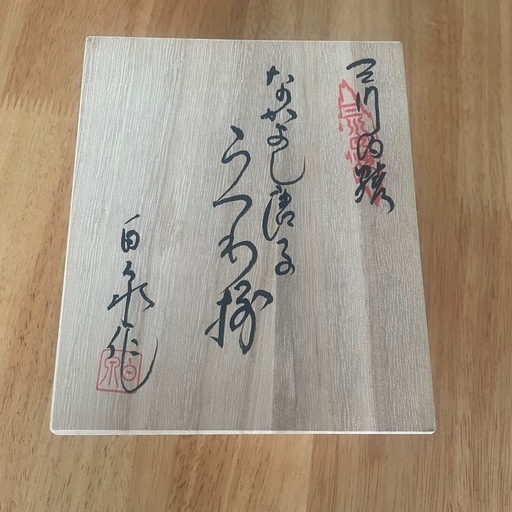 三川内焼
なかよし唐子
うつわ揃
白泉作